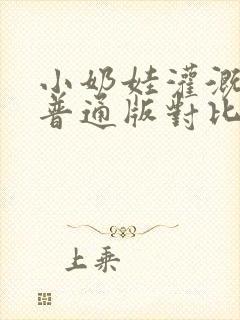 小奶娃灌溉
普通版對比
上乘